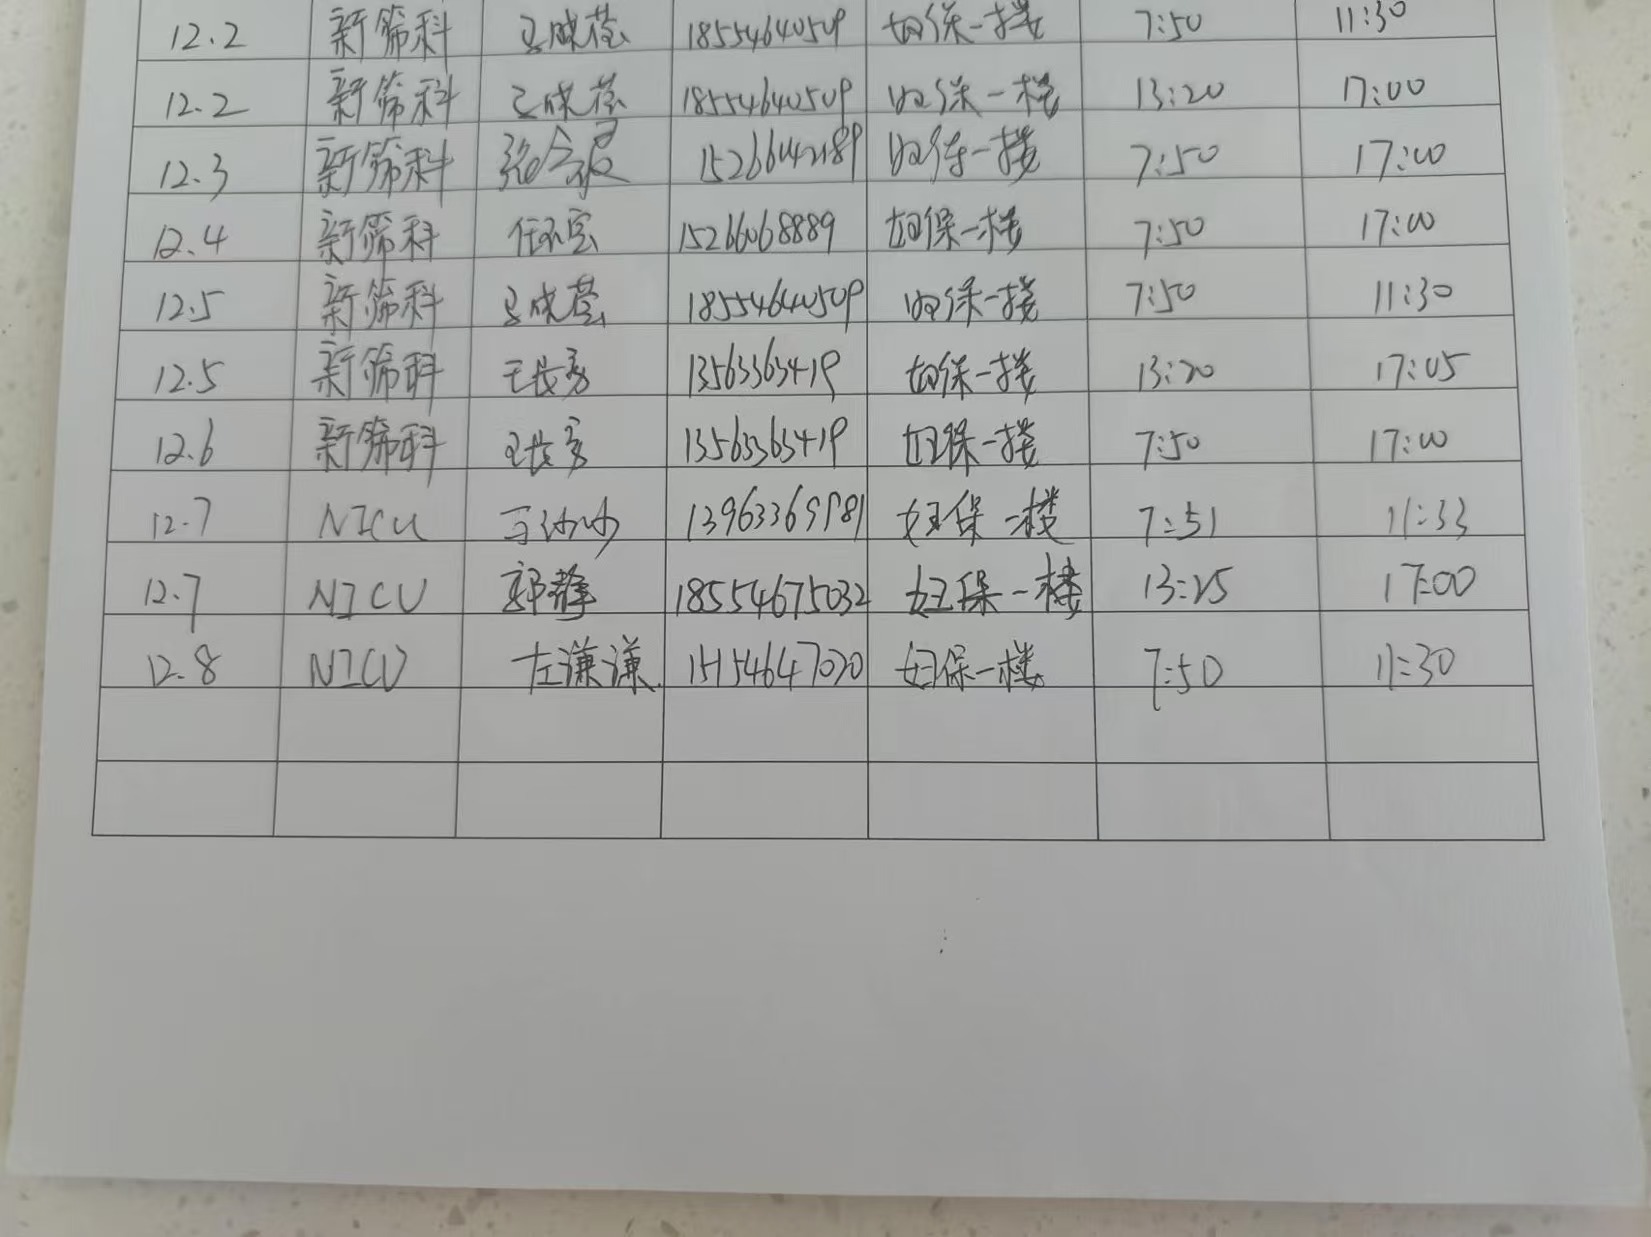 12.2 新筛科 18554640509 妇保一楼 7:50 11:30
12.2 新筛科 18554640509 妇保一楼 13:20 17:00
12.3 新筛科 15266442189 妇保一楼 7:50 17:00
12.4 新筛科 15266068889 妇保一楼 7:50 17:00
12.5 新筛科 18554640509 妇保一楼 7:50 11:30
12.5 新筛科 13563363419 妇保一楼 13:20 17:05
12.6 新筛科 13563363419 妇保一楼 7:50 17:00
12.7 NICU 马沙沙 妇保一楼 7:51 11:33
12.7 NICU 郭静 18554675032 妇保一楼 13:25 17:00
12.8 NICU 左谦谦 15154647020 妇保一楼 7:50 11:30